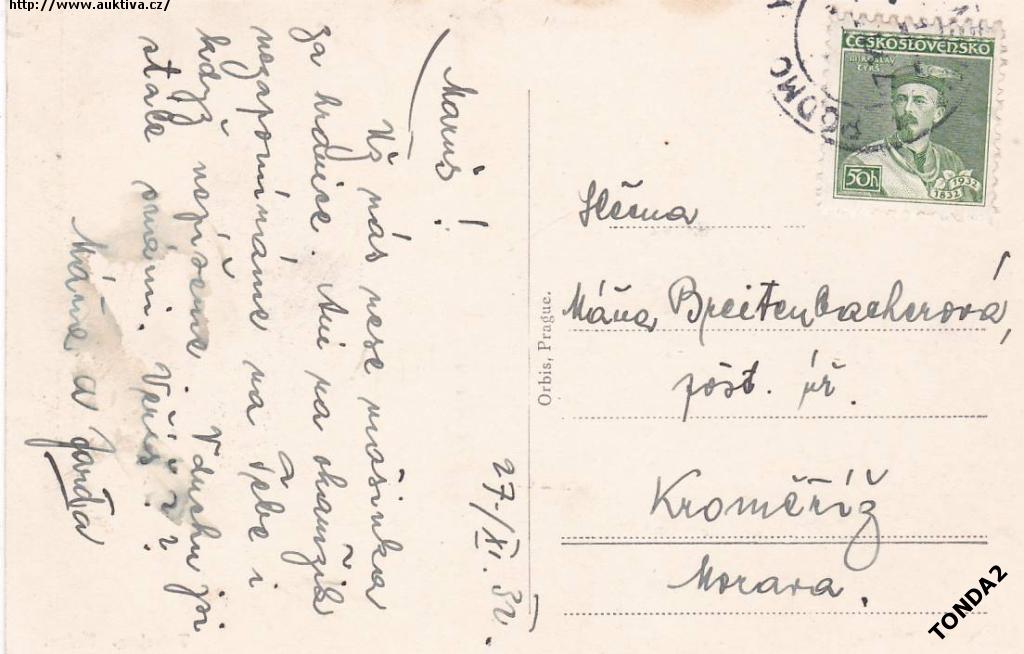 http://www.auktiva.cz/
Maruš!
Už nás nese mašinka
za hranice. Ani na okamžik
nezapomínáme na Tebe i
když nepíšeme V duchu jsi
stále s námi. Věříš?
Máňa a Jarďa
27./XI. 32.
Orbis, Prague.
ČESKOSLOVENSKO
MIROSLAV
TYRŠ
50h
1932
1832
Slečna
Máňa Breitenbacherová,
pošt. úř.
Kroměříž
Morava.
TONDA2